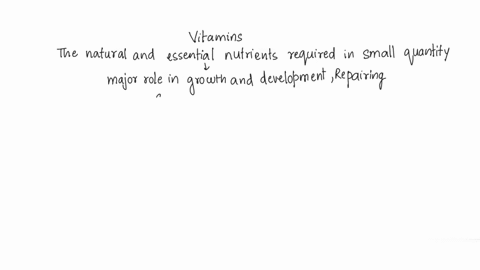 Vitamins
The natural and essential nutrients required in small quantity
major role in growth and development, Repairing